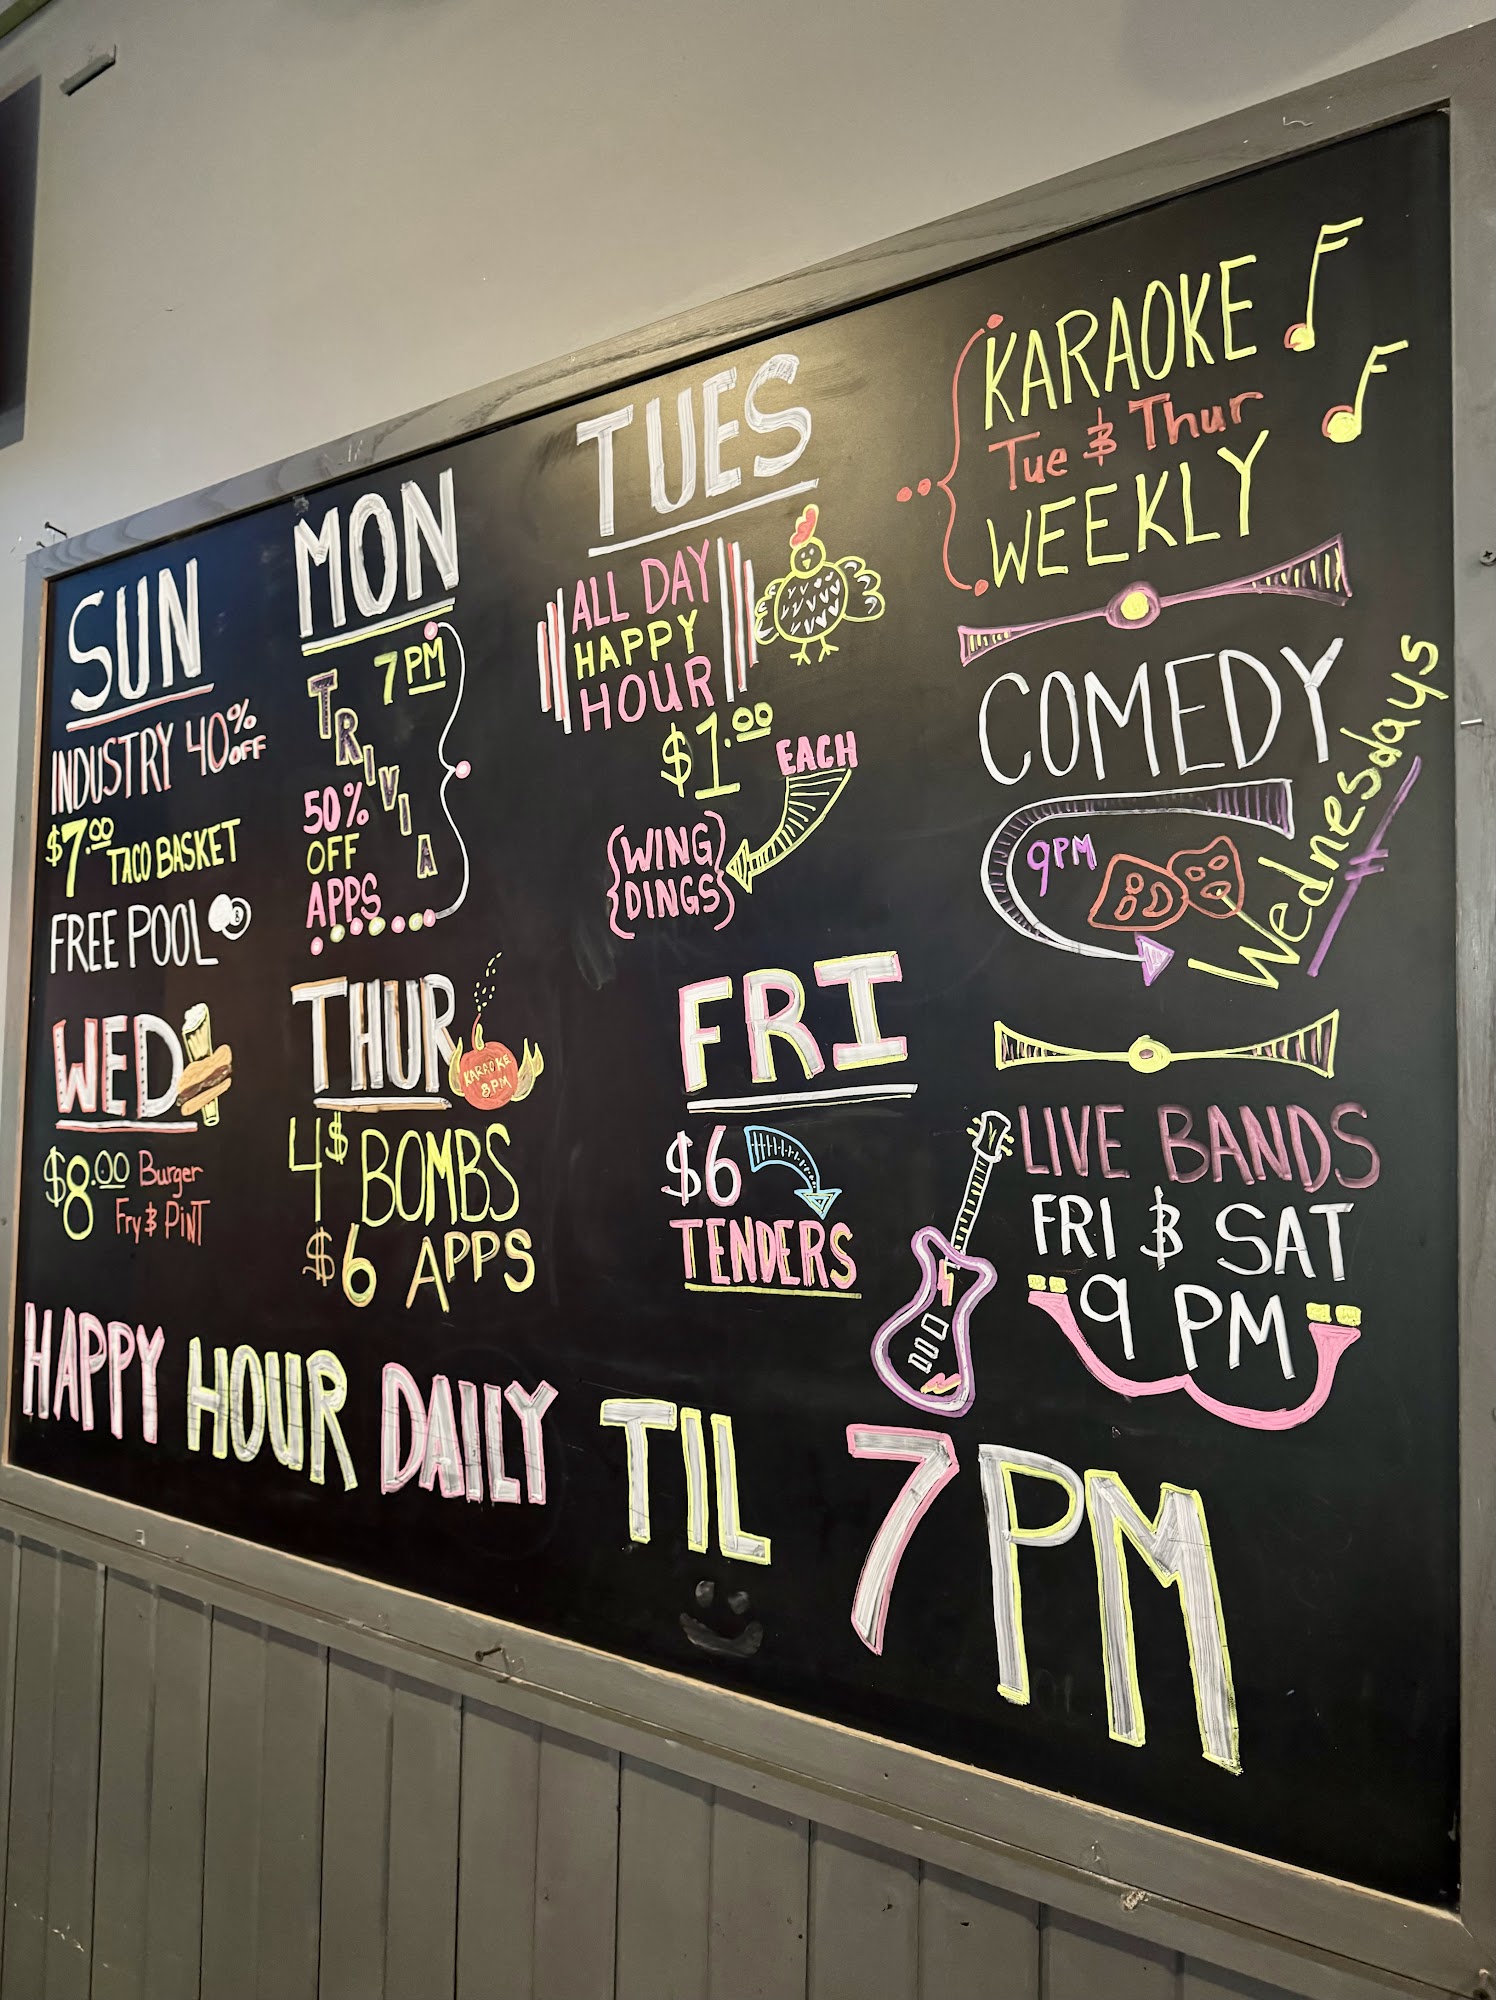 SUN
INDUSTRY 40% OFF
$7.00 TACO BASKET
FREE POOL
8
MON
7PM
TRIVIA
50%
OFF
APPS
TUES
ALL DAY
HAPPY
HOUR
$1.00
EACH
{WING
DINGS}
KARAOKE
Tue & Thur
WEEKLY
COMEDY
9PM
Wednesdays
WED
$8.00 Burger
Fry & PiNT
THUR
KARAOKE
8PM
4$ BOMBS
$6 APPS
FRI
$6
TENDERS
LIVE BANDS
FRI & SAT
9 PM
HAPPY HOUR DAILY TIL 7PM